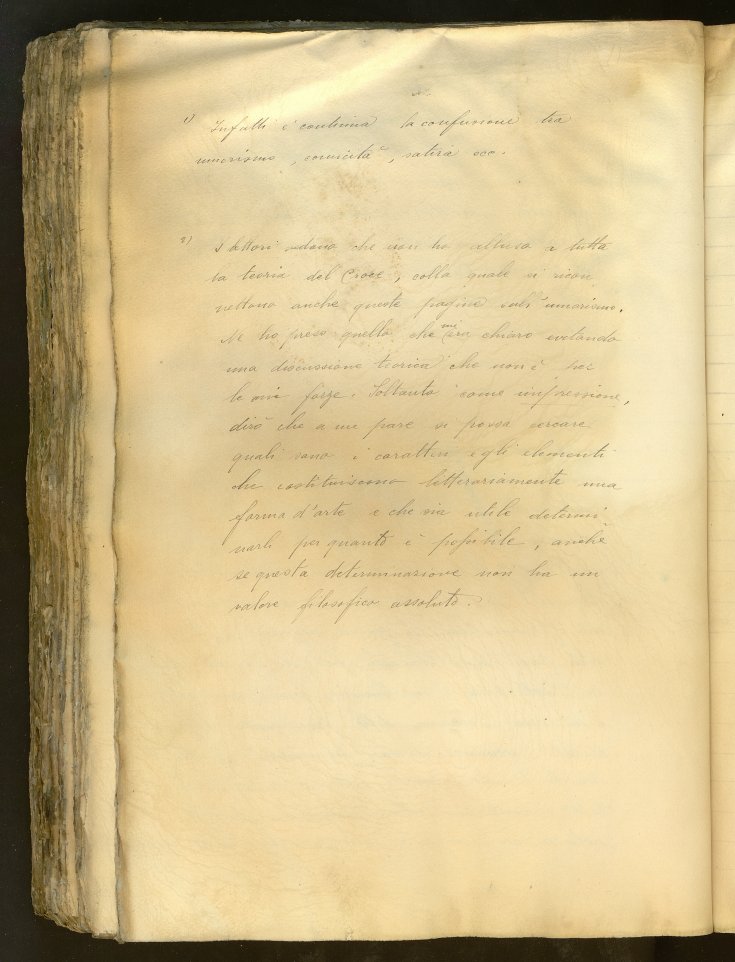 1) Infatti è continua la confusione tra
umorismo, comicità, satira ecc.
2) I lettori vedono che non ho alluso a tutta
la teoria del Croce, colla quale si ricon
nettono anche queste pagine sull'umorismo.
Ne ho preso quello che m'era chiaro evitando
una discussione teorica che non è per
le mie forze. Soltanto come impressione,
dirò che a me pare si possa cercare
quali sono i caratteri e gli elementi
che costituiscono letterariamente una
forma d'arte e che sia utile determi-
narli per quanto è possibile, anche
se questa determinazione non ha un
valore filosofico assoluto.